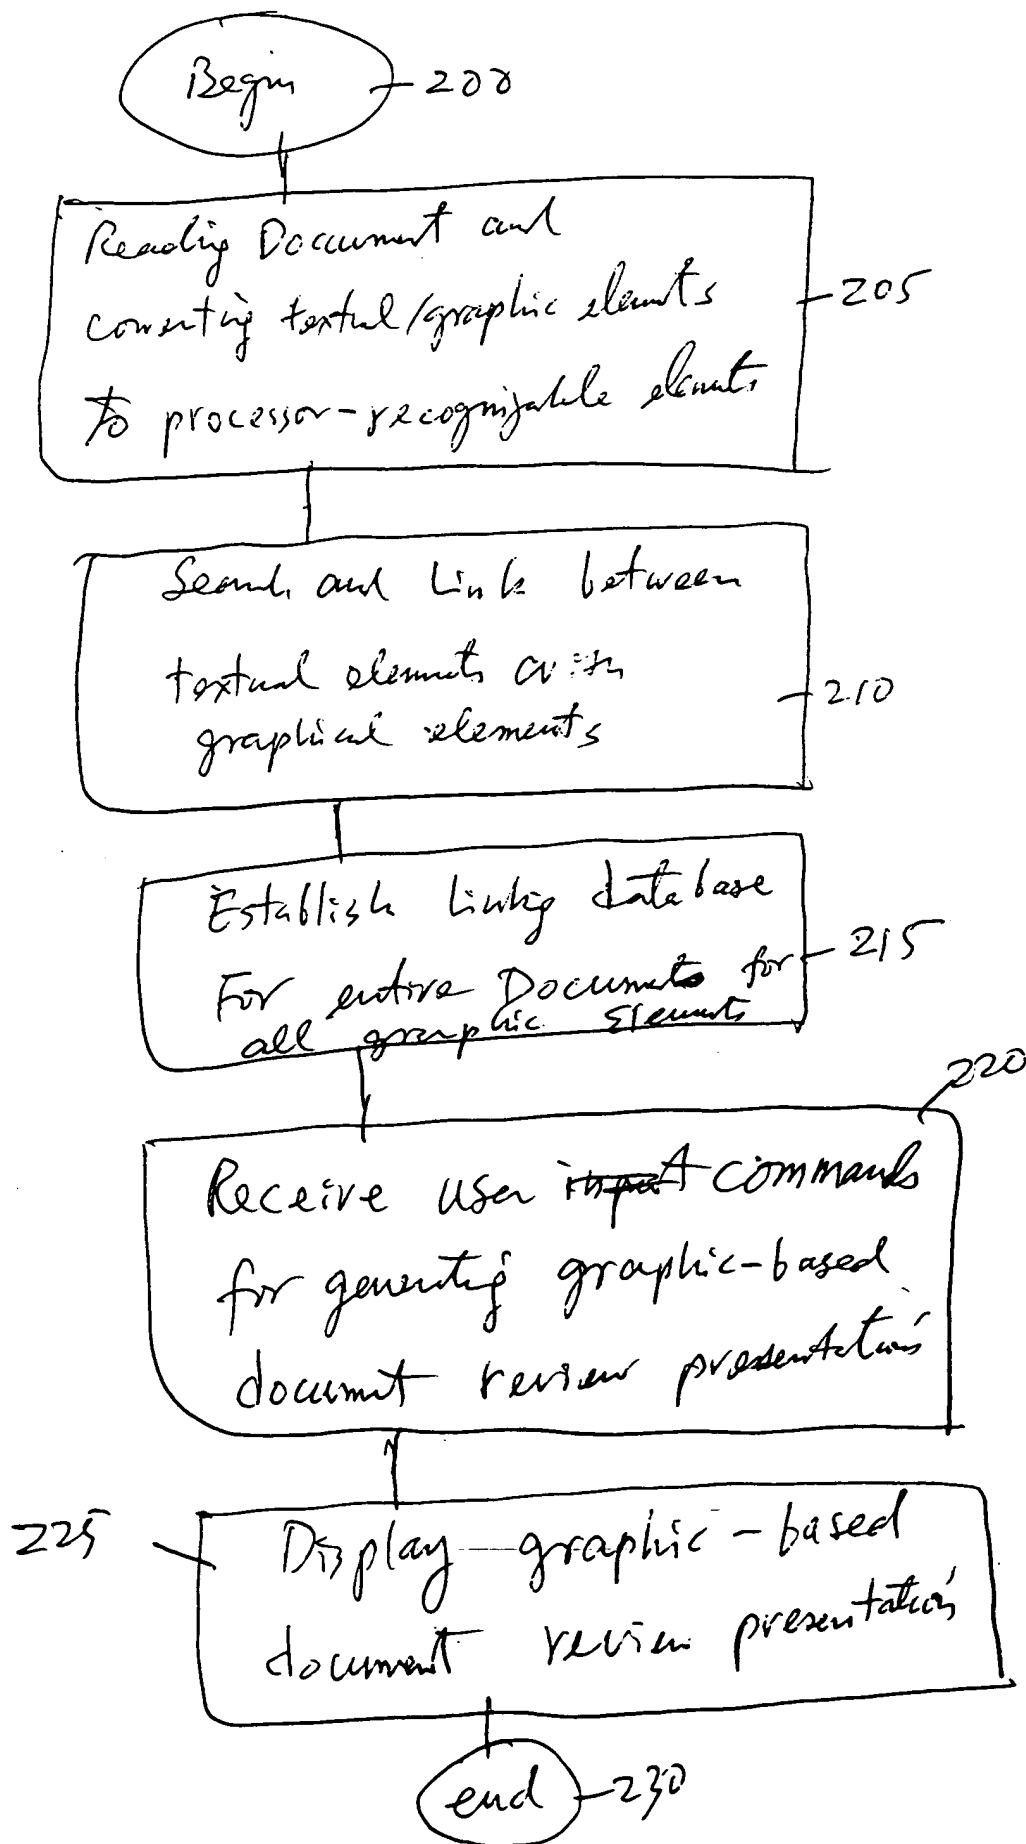 Begin 200
Reading Document and
converting textual/graphic elements 205
to processor-recognizable elements
Search and Link between
textual elements with 210
graphical elements
Establish linking database
For entire Documents for 215
all graphic Elements
220
Receive user input commands
for generating graphic-based
document review presentations
225 Display graphic-based
document review presentations
end 230